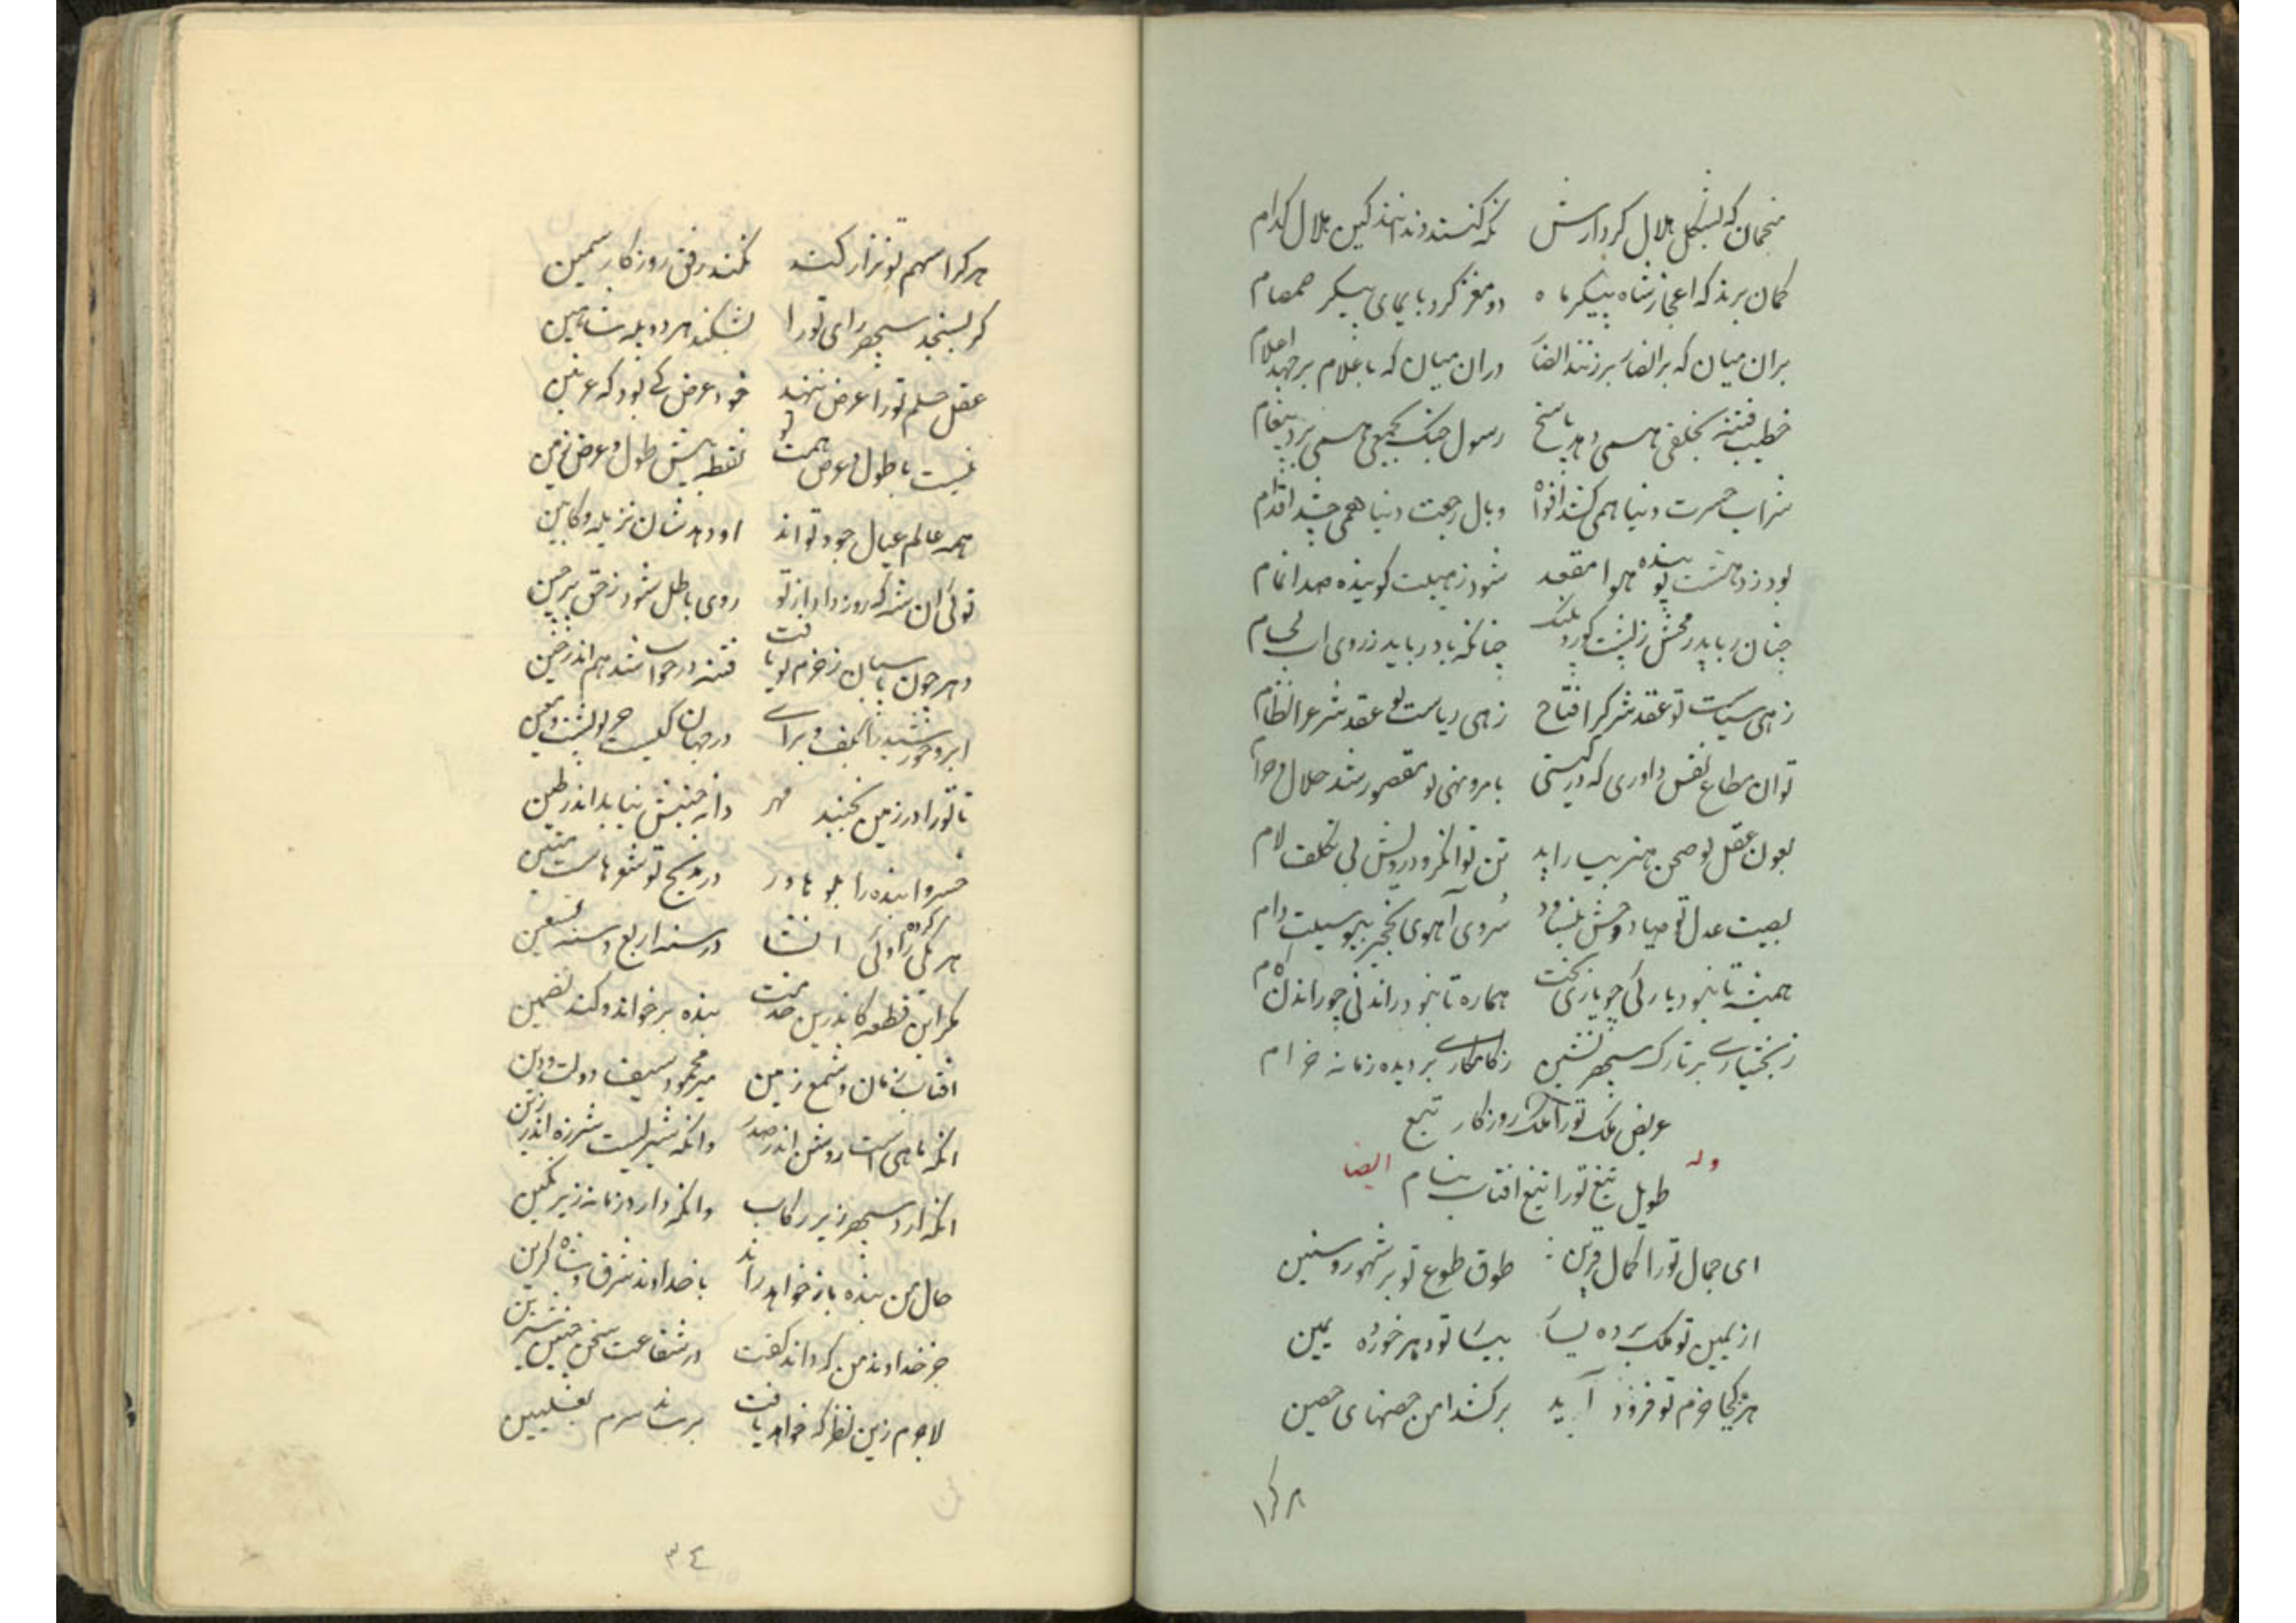 منجمان که بشکل هلال کردارش نکه کنند ندانند کین هلال کدام
کمان برند که اعجاز شاه پیکر ماه دو مغز کرد بایمای پیکر صمصام
بران میان که بر الفا برزند الفا دران میان که باعلام برجهد اعلام
خطیب فتنه بخلقی همی دهد پاسخ رسول جنک بجمعی همی برد پیغام
شراب حسرت دنیا همی کشد افواه وبال رجعت دنیا همی چشد اقدام
بود ز دهشت پوینده هوا مقعد شود ز هیبت کوینده صدا تمام
چنان رباید رمحش ز پشت کور و پلنک چنانکه باد رباید ز روی اب لحام
زهی سیاست تو عقد شرک را فتاح زهی ریاست تو عقد شرع را نظام
توان مطاع نفس داوری که در کیتی بامر و نهی تو مقصور شد حلال و حرام
بعون عقل تو صحن هنر بپیراید تن توانکر و درویش بی تکلف لام
بصیت عدل تو صیاد وحش بنماید سروی آهوی نخجیر بی وسیلت دام
همیشه تا نبود یارکی چو یارکی بخت هماره تا نبود راندنی چو راندن کام
ز بختیاری بر تارک سپهر نشین ز کامکاری بر دیده زمانه خرام
عریض ملک تو را ملک روزکار تبع
طویل تیغ تو را تیغ افتاب نیام
وله ایضا
ای جمال تو را کمال قرین طوق طوع تو بر شهور و سنین
از یمین تو ملک برده یسار بیسار تو دهر خورده یمین
هر کجا حزم تو فرود آید برکشد امن حصنهای حصین
هر کرا
هر کرا سهم تو نزار کند نکند رفق روزکار سمین
کر بسنجد سپهر رای تو را بشکند هر دو پله شاهین
عقل حلم تو را عرض ننهد خود عرض کی بود که عرش
نیست با طول و عرض همت تو نقطه بیش طول و عرض زمین
همه عالم عیال جود تو اند او دهدشان نزیله و کابین
توئی ان شه که روز داد از تو روی باطل شود ز حق پر چین
دهر چون پاسبان ز حزم تو یافت فتنه در خواب شد هم اندر حین
ابر و خورشید را بکف و برای در جهان کیست جز تو پشت و معین
تا تو را در زمین نجنبد مهر دانه جنبش نیابد اندر طین
خسروا بنده را بلوهاور در مدیح تو شعرهاست متین
هر یکی کرده راوئی انشا در سنه اربع و سنه تسعین
مکر این قطعه کاندرین خدمت بنده برخواند و کند تضمین
افتاب زمان و شمع زمین میر محمود سیف دولت و دین
انکه ماهی است روشن اندر صدر وانکه شیریست شرزه اندر زین
انکه ارد سپهر زیر رکاب وانکه دارد زمانه زیر نکین
حال من بنده باز خواهد راند با خداوند شرق و شاه کزین
جز خداوند من که داند کفت در شفاعت سخن چنین شیرین
لاجرم زین نظر که خواهد یافت برساند سرم بعلیین
۳۴